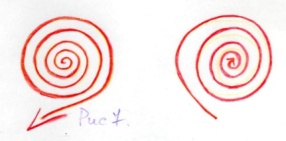 Рис 7.